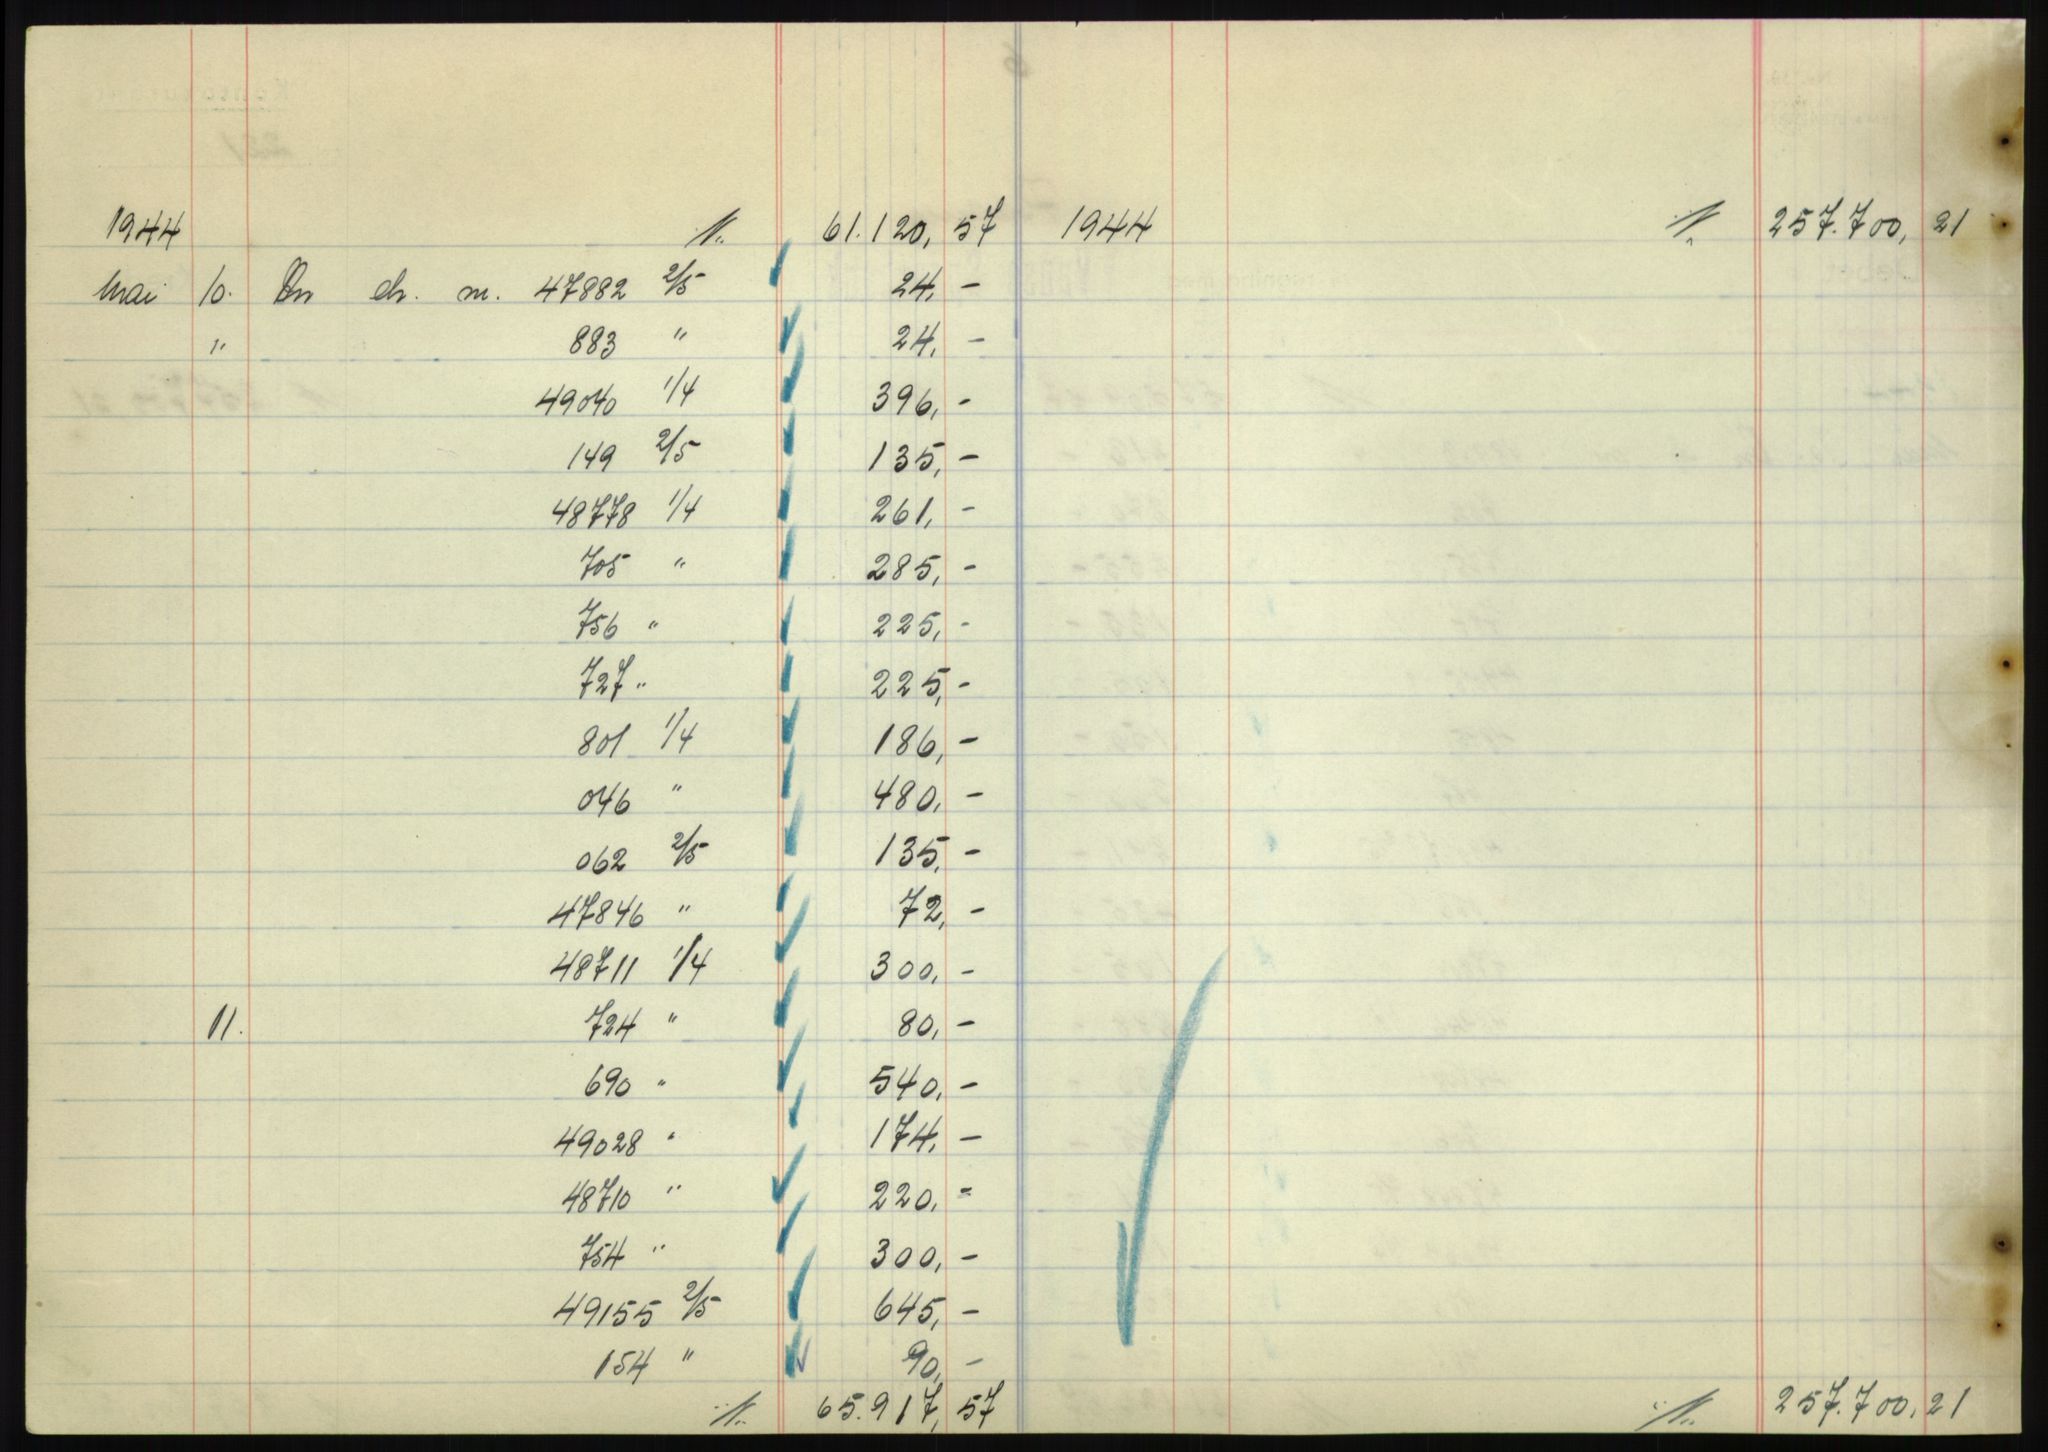 1944 ./. 61.120,57 1944 ./. 257.700,21
Mai 10. An ch. n. 47882 2/5 24,-
" 883 " 24,-
49040 1/4 396,-
149 2/5 135,-
48778 1/4 261,-
705 " 285,-
756 " 225,-
727 " 225,-
801 1/4 186,-
046 " 480,-
062 2/5 135,-
47846 " 72,-
48711 1/4 300,-
11. 724 " 80,-
690 " 540,-
49028 " 174,-
48710 " 220,-
754 " 300,-
49155 2/5 645,-
154 " 90,-
./. 65.917,57 ./. 257.700,21